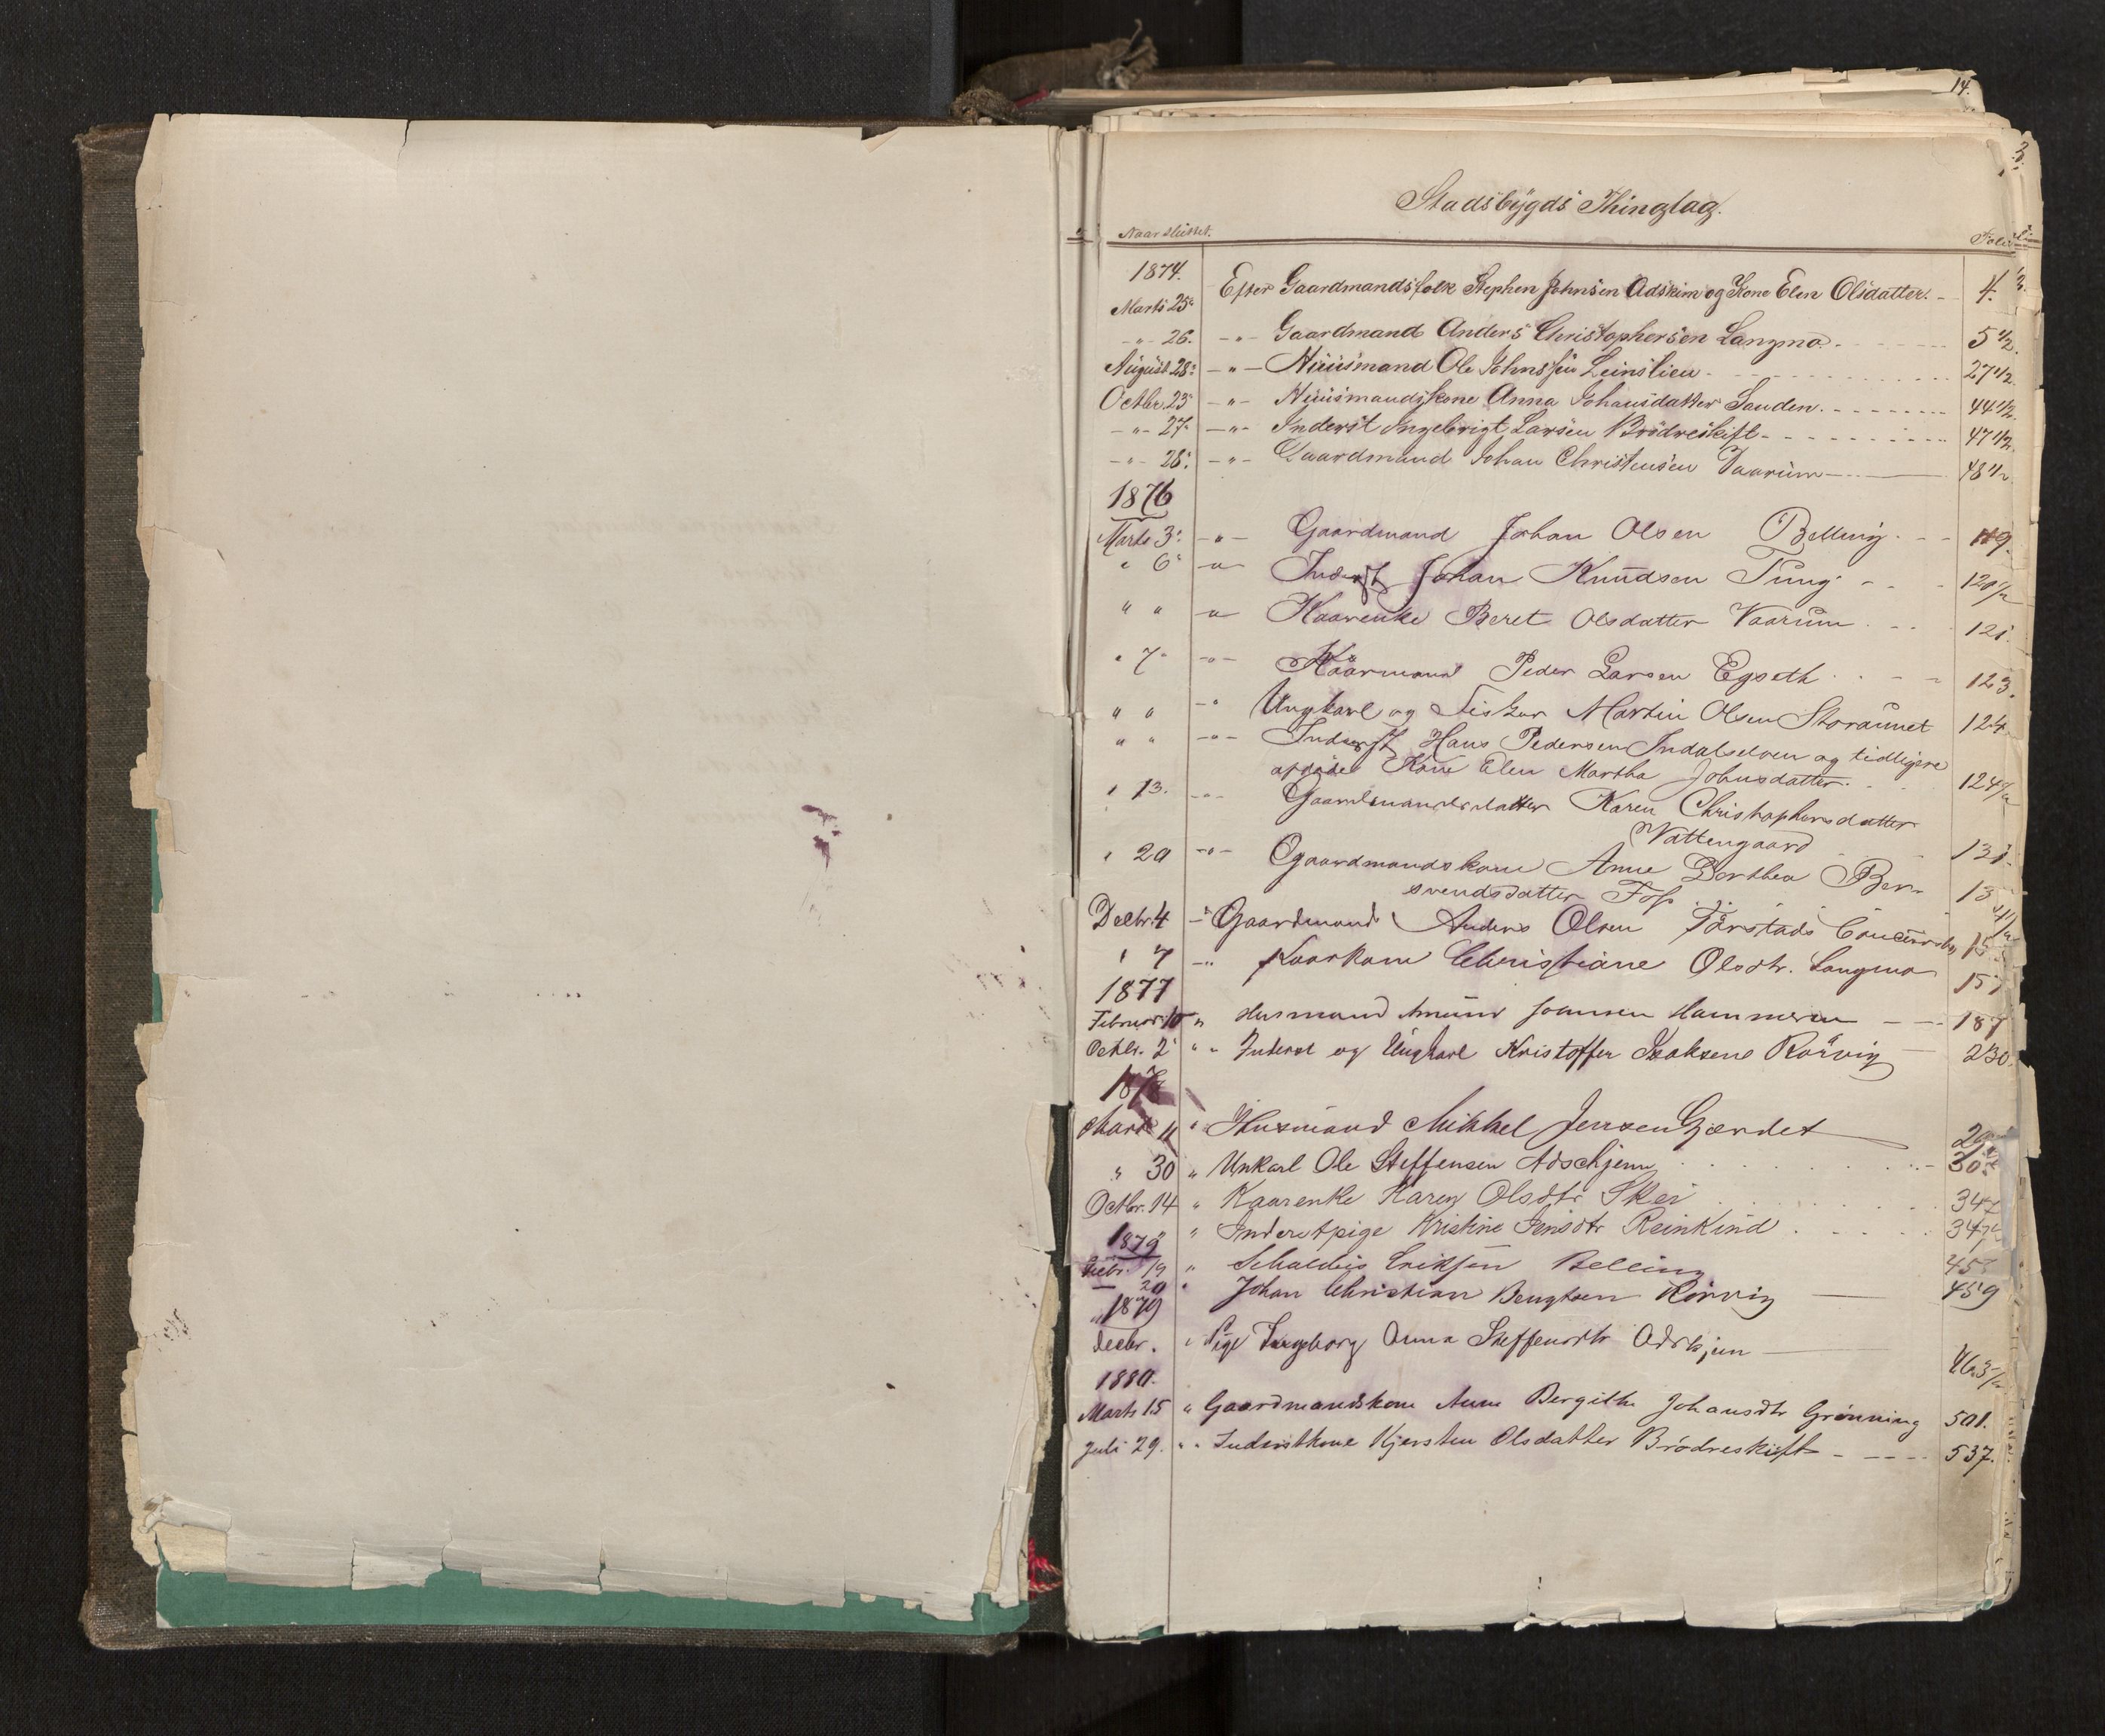 14.
3.
Stadsbygds Thinglag.
Naar sluttet. Folio
1874.
Marts 25. Efter Gaardmandsfolk Stephen Johnsen Adskim og Kone Elen Olsdatter. 4.
-"- 26. -"- Gaardmand Anders Christophersen Langmo. 5 1/2.
August 28. -"- Huusmand Ole Johnssen Leinslien 27 1/2.
Octbr. 23 -"- Huusmandskone Anna Johansdatter Sanden. 44 1/2.
-"- 27. -"- Inderst Ingebrigt Larsen Brödreskift 47 1/2.
-"- 28. -"- Gaardmand Johan Christensen Vaarum 48 1/2
1876
Marts 3. -"- Gaardmand Johan Olsen Belling. 119.
" 6. -"- Inderst Johan Knudsen Tung 120 1/2
" " -"- Kaarenke Beret Olsdatter Vaarum 121.
" 7. -"- Kaarmand Peder Larsen Egseth 123.
" " -" Ungkarl og Fisker Martin Olsen Storaunet 124
" " -"- Inderst Hans Pedersen Indalselven og tidligere
afdöde Kone Elen Martha Johnsdatter. 124 1/2
" 13. -"- Gaardmandsdatter Karen Christophersdatter
Vattengaard 131.
" 20 -"- Gaardmandskone Anne Berthea Ber-
svendsdatter Fos 13
Decbr. 4 -"- Gaardmand Anders Olsen
" 7 -"- Kaarkone Christiane Olsdtr. Langmo 157
1877
Februar 10 " Husmand Amund Joansen Hammeren 187
Octbr. 2 " " Inderst og Ungkarl Kristoffer Isaksens Rørvig 230.
1878
Marts 11 " Husmand Mikkel Jensen Gjerdet
" 30 " Unkarl Ole Steffensen Adschjem 30
Octbr. 14 " Kaarenke Karen Olsdtr Skei 347
" " Inderstpige Kristine Jensdtr Reinkind 347 1/2
1879
Decbr. 19 " Eriksen Belling 458
— 20 " Johan Christian Bengtsen Rörvig 459
" 1879
Decbr. " Pige Ingeborg Anna Steffensdtr Adskjem 463 1/2
1880.
Marts 15 " Gaardmandskone Anne Bergithe Johansdtr Grønning 501.
Juli 29. " " Inderstkone Kjersten Olsdatter Brödreskift 537.